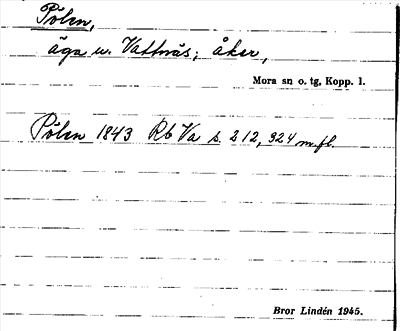 Pölen,
äga u. Vattnäs; åker,
Mora sn o. tg, Kopp. l.
Pölen 1843 Rb Va s. 212, 324 m.fl.
Bror Lindén 1945.